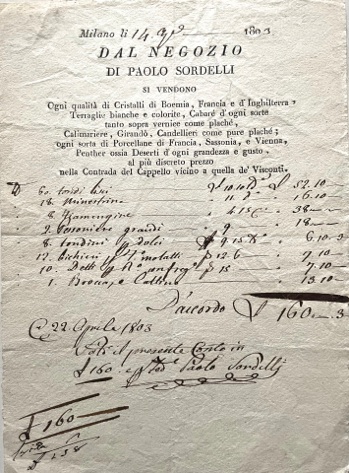 Milano li 14 Ap 1803
DAL NEGOZIO
DI PAOLO SORDELLI
SI VENDONO
Ogni qualità di Cristalli di Boemia, Francia e d'Inghilterra,
Terraglie bianche e colorite, Cabaré d'ogni sorte
tanto sopra vernice come plaché,
Calamariere, Girandò, Candellieri come pure plaché;
ogni sorta di Porcellane di Francia, Sassonia, e Vienna,
Peather ossia Deserti d'ogni grandezza e gusto
al più discreto prezzo
nella Contrada del Cappello vicino a quella de' Visconti.
50. tondi fini 52.10
18. Minestrine 11 16.10
8. Fiamengine 4.15 38
2. grandi 9 18
8. tondini p dolci 6.10.3
12. Bichieri 12.6 7.10
10. Detti 15 7.10
1. 13.10
D'accordo £ 160.3
22 Aprile 1803
il presente Conto in
£ 160 Paolo Sordelli
£ 160